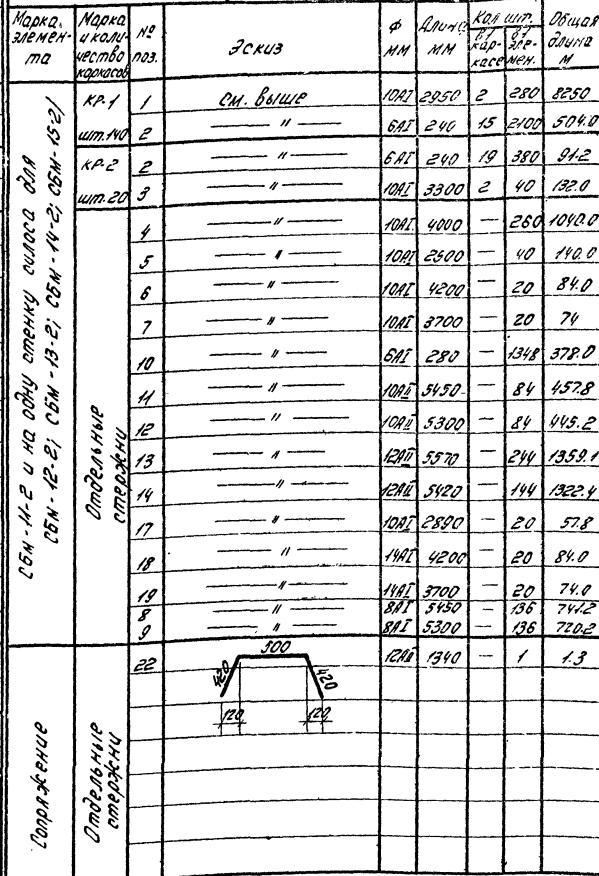 Марка элемен- та | Марка и коли- чество каркасов | № поз. | Эскиз | ф мм | Длина мм | Кол. шт. в 1 кар- касе | в 1 эле- мен. | Общая длина м
СБМ-11-2 и на одну стенку силоса для
СБМ-12-2; СБМ-13-2; СБМ-14-2; СБМ-15-2)
КР-1 | 1 | см. выше | 10АI | 2950 | 2 | 280 | 8250
шт.140 | 2 | — " — | 6АI | 240 | 15 | 2100 | 504.0
КР-2 | 2 | — " — | 6АI | 240 | 19 | 380 | 91.2
шт.20 | 3 | — " — | 10АI | 3300 | 2 | 40 | 132.0
Отдельные стержни
4 | — " — | 10АI | 4000 | — | 260 | 1040.0
5 | — " — | 10АI | 2500 | — | 40 | 140.0
6 | — " — | 10АI | 4200 | — | 20 | 84.0
7 | — " — | 10АI | 3700 | — | 20 | 74
10 | — " — | 6АI | 280 | — | 1348 | 378.0
11 | — " — | 10АII | 5450 | — | 84 | 457.8
12 | — " — | 10АII | 5300 | — | 84 | 445.2
13 | — " — | 12АII | 5570 | — | 244 | 1359.1
14 | — " — | 12АII | 5420 | — | 144 | 1322.4
17 | — " — | 10АI | 2890 | — | 20 | 57.8
18 | — " — | 14АI | 4200 | — | 20 | 84.0
19 | — " — | 14АI | 3700 | — | 20 | 74.0
8 | — " — | 8АI | 5450 | — | 136 | 741.2
9 | — " — | 8АI | 5300 | — | 136 | 720.2
Сопряжение
Отдельные стержни
22 | 500 | 12АII | 1340 | — | 1 | 1.3
420 420
120 120